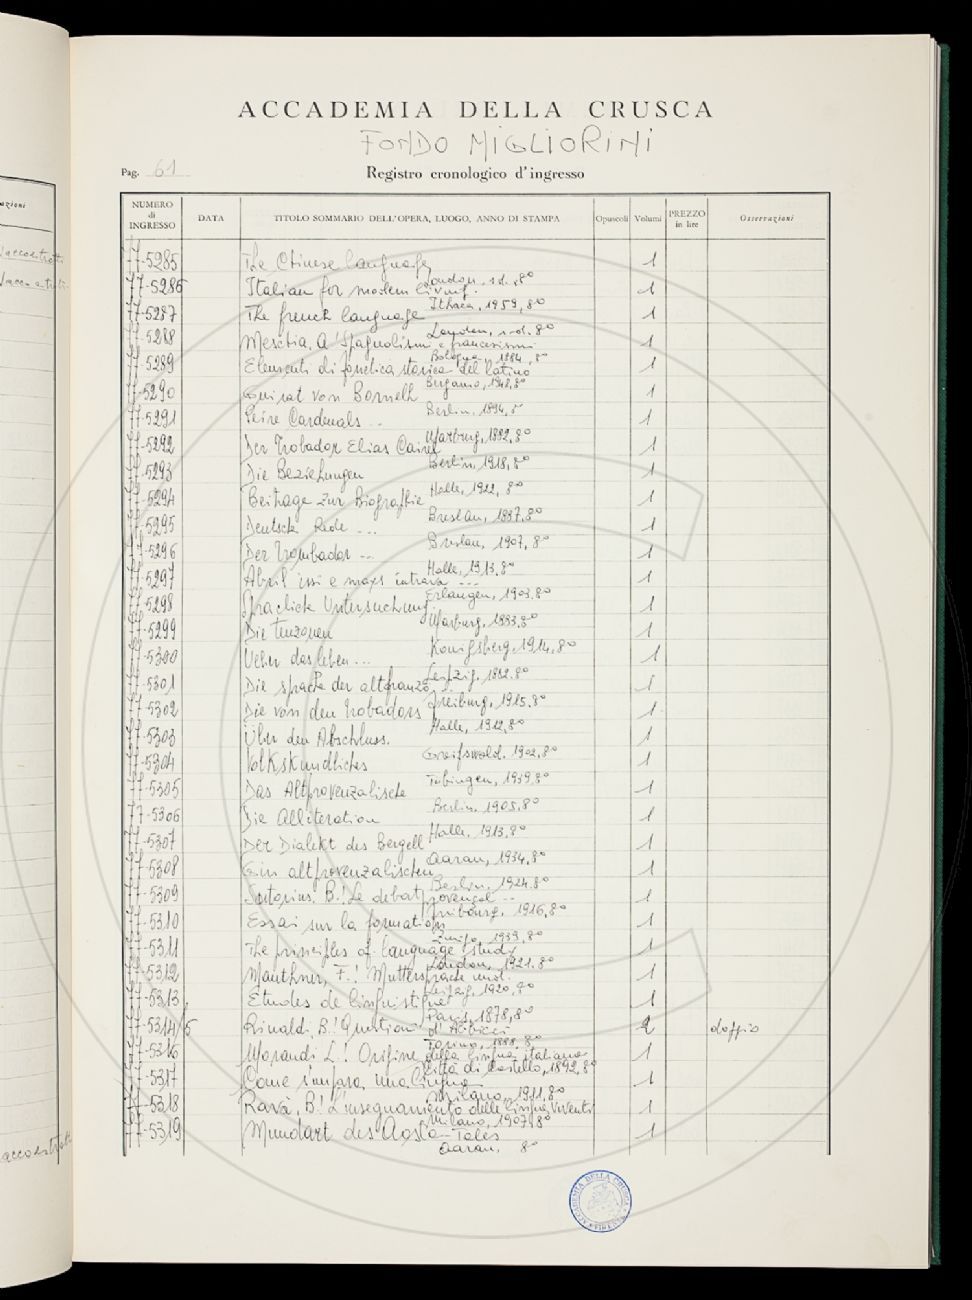 ACCADEMIA DELLA CRUSCA
FONDO MIGLIORINI
Pag. 61
Registro cronologico d'ingresso
NUMERO di INGRESSO DATA TITOLO SOMMARIO DELL'OPERA, LUOGO, ANNO DI STAMPA Opuscoli Volumi PREZZO in lire Osservazioni
77-5285 The Chinese language 1
London, s.d., 8°
77-5286 Italian for modern living. 1
Ithaca, 1959, 8°
77-5287 The french language 1
London, s.d. 8°
77-5288 Meschia, A! Spagnolismi e francesismi 1
Bologna, 1884, 8°
77-5289 Elementi di fonetica storica del latino 1
Bergamo, 1948, 8°
77-5290 Guirat von Bornelh 1
Berlin, 1894, 8°
77-5291 Peire Cardenals .. 1
Marburg, 1882, 8°
77-5292 Der Trobador Elias Cairel 1
Berlin, 1918, 8°
77-5293 Die Beziehungen 1
Halle, 1922, 8°
77-5294 Beitrage zur Biografhie 1
Breslau, 1887, 8°
77-5295 Deutsche Rede ... 1
Breslau, 1907, 8°
77-5296 Der Troubador ... 1
Halle, 1913, 8°
77-5297 Abril issi e mays intrava ... 1
Erlangen, 1903, 8°
77-5298 Spraclich Untersuchung 1
Marburg, 1883, 8°
77-5299 Die Tenzonen 1
Konigsberg, 1914, 8°
77-5300 Ueber das leben ... 1
Leipzig, 1882, 8°
77-5301 Die sprache der altfranzö. 1
Freiburg, 1915, 8°
77-5302 Die von den Trobadors 1
Halle, 1912, 8°
77-5303 Über den Abschluss. 1
Greifswald, 1902, 8°
77-5304 Volkskundliches 1
Tubingen, 1939, 8°
77-5305 Das Altprovenzalische 1
Berlin, 1905, 8°
77-5306 Die Alliteration 1
Halle, 1913, 8°
77-5307 Der Dialekt des Bergell 1
Aarau, 1934, 8°
77-5308 Ein altprovenzalischen 1
Berlin, 1924, 8°
77-5309 Sartorius! B.! Le debat provençal ... 1
Fribourg, 1916, 8°
77-5310 Essai sur la formation 1
Zurigo, 1939, 8°
77-5311 The principles of language study 1
London, 1921, 8°
77-5312 Mauthner, F.! Muttersprache und. 1
Leipzig, 1920, 8°
77-5313 Etudes de linguistique 1
Paris, 1878, 8°
77-5314/5 Rinaldi, B.! Questioni d' 2 doppio
Torino, 1888, 8°
77-5316 Morandi L.! Origine della lingua italiana 1
Città di Castello, 1892, 8°
77-5317 Come s'impara una lingua 1
Milano, 1911, 8°
77-5318 Ravà, B! L'insegnamento delle lingue viventi 1
Milano, 1907, 8°
77-5319 Mundart des Aosta-Tales 1
Aarau, 8°
ACCADEMIA DELLA CRUSCA